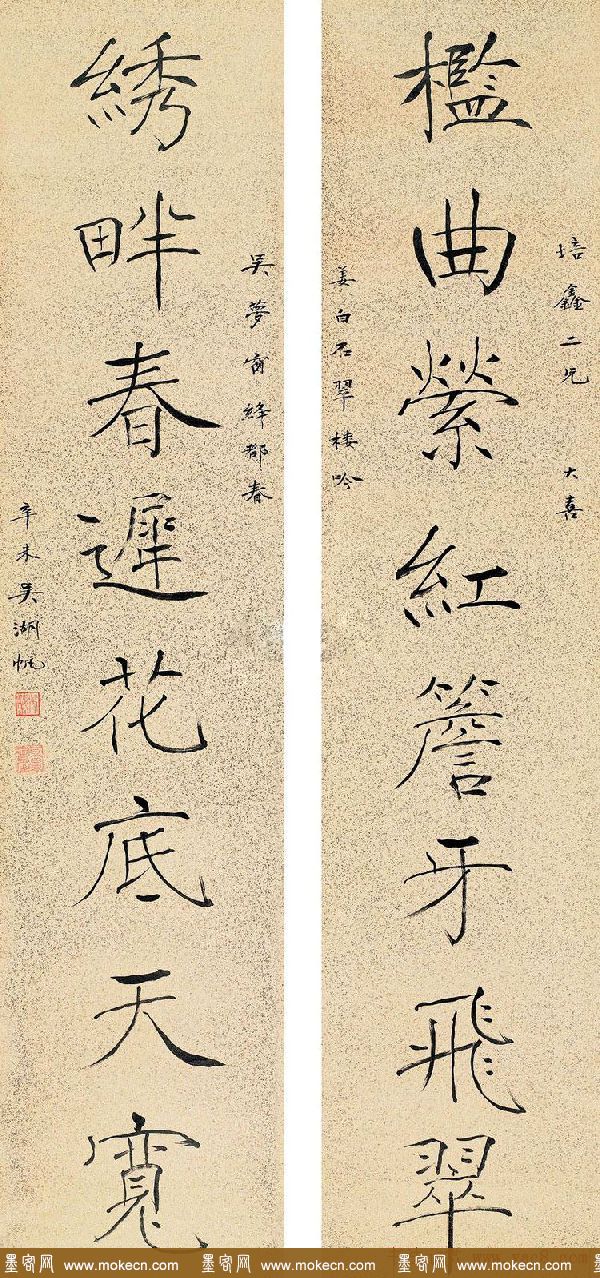 培鑫二兄 大喜
檻曲縈紅簷牙飛翠
姜白石翠樓吟
吳夢窗絳都春
綉畔春遲花底天寬
辛未吳湖帆
墨客网 www.mokecn.com 墨客网 www.mokecn.com 墨客网 www.mokecn.com